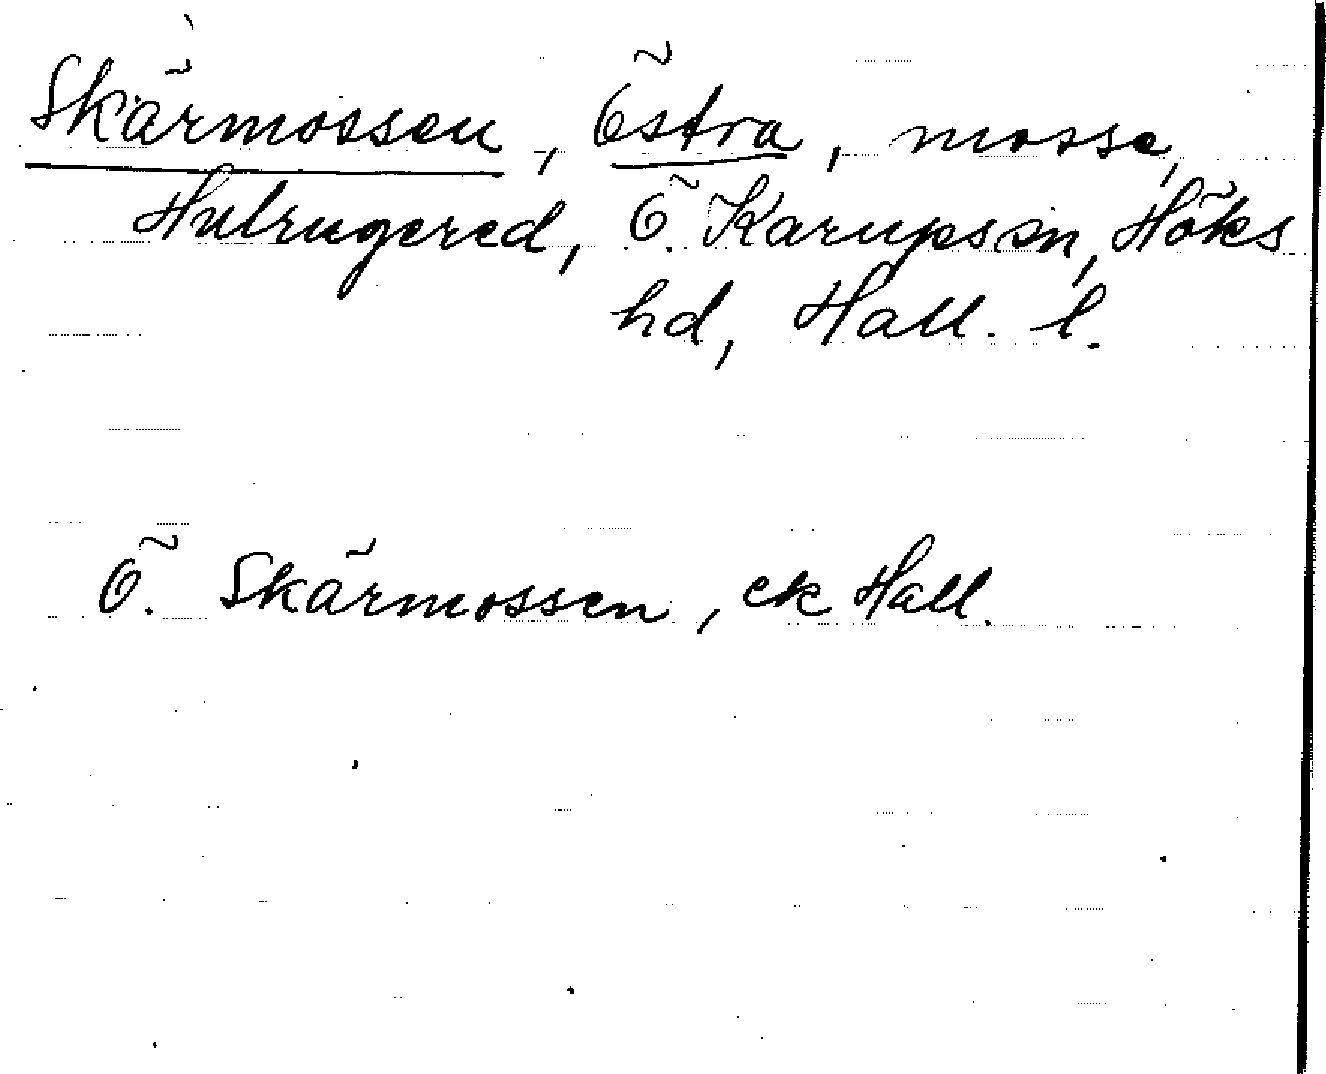 Skärmossen, Östra, mosse,
Hulrugered, Ö. Karups sn, Höks
hd, Hall. l.
Ö. Skärmossen, ek Hall.